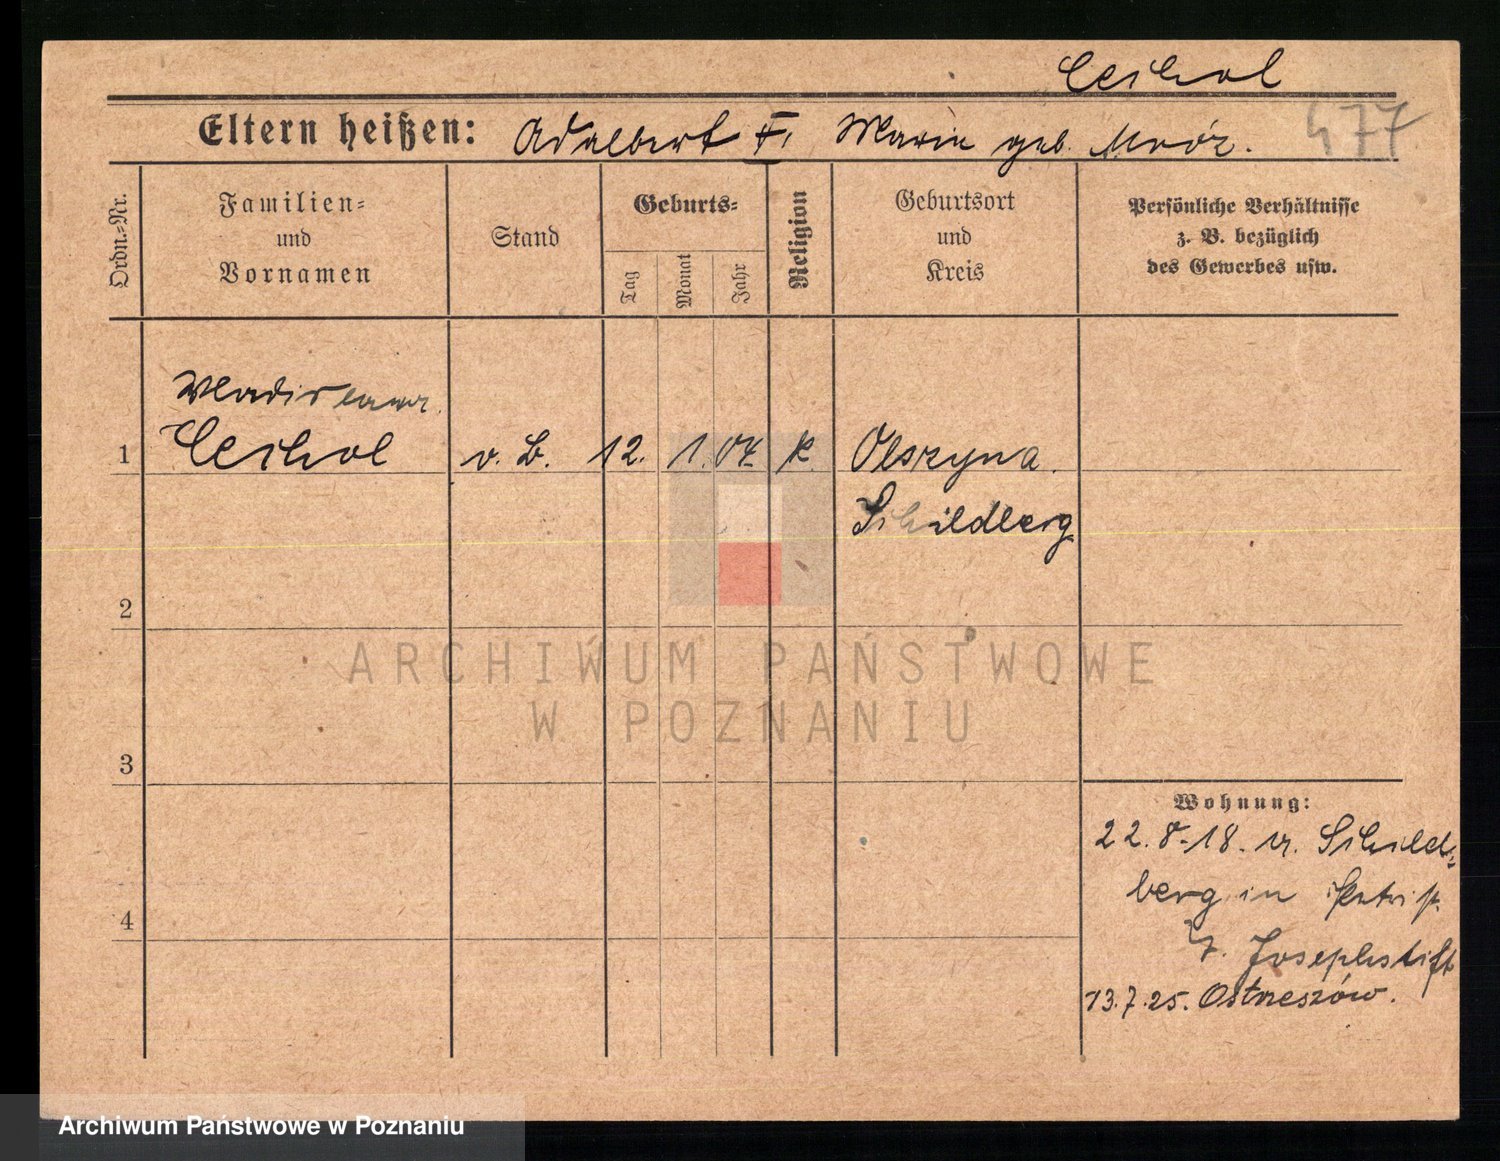 Cichol
Eltern heißen: Adalbert F. Marie geb. Mróz.
477
Ordn.-Nr.
Familien-
und
Vornamen
Stand
Geburts-
Tag
Monat
Jahr
Religion
Geburtsort
und
Kreis
Persönliche Verhältnisse
z. B. bezüglich
des Gewerbes usw.
Wladislaw
1 Cichol v. B. 12. 1. 07. k. Olszyna.
Schildberg
2
ARCHIWUM PAŃSTWOWE
W POZNANIU
3
Wohnung:
22.8.18. n. Schild-
berg in
Josephstift
4
13.7.25. Ostrzeszów.
Archiwum Państwowe w Poznaniu